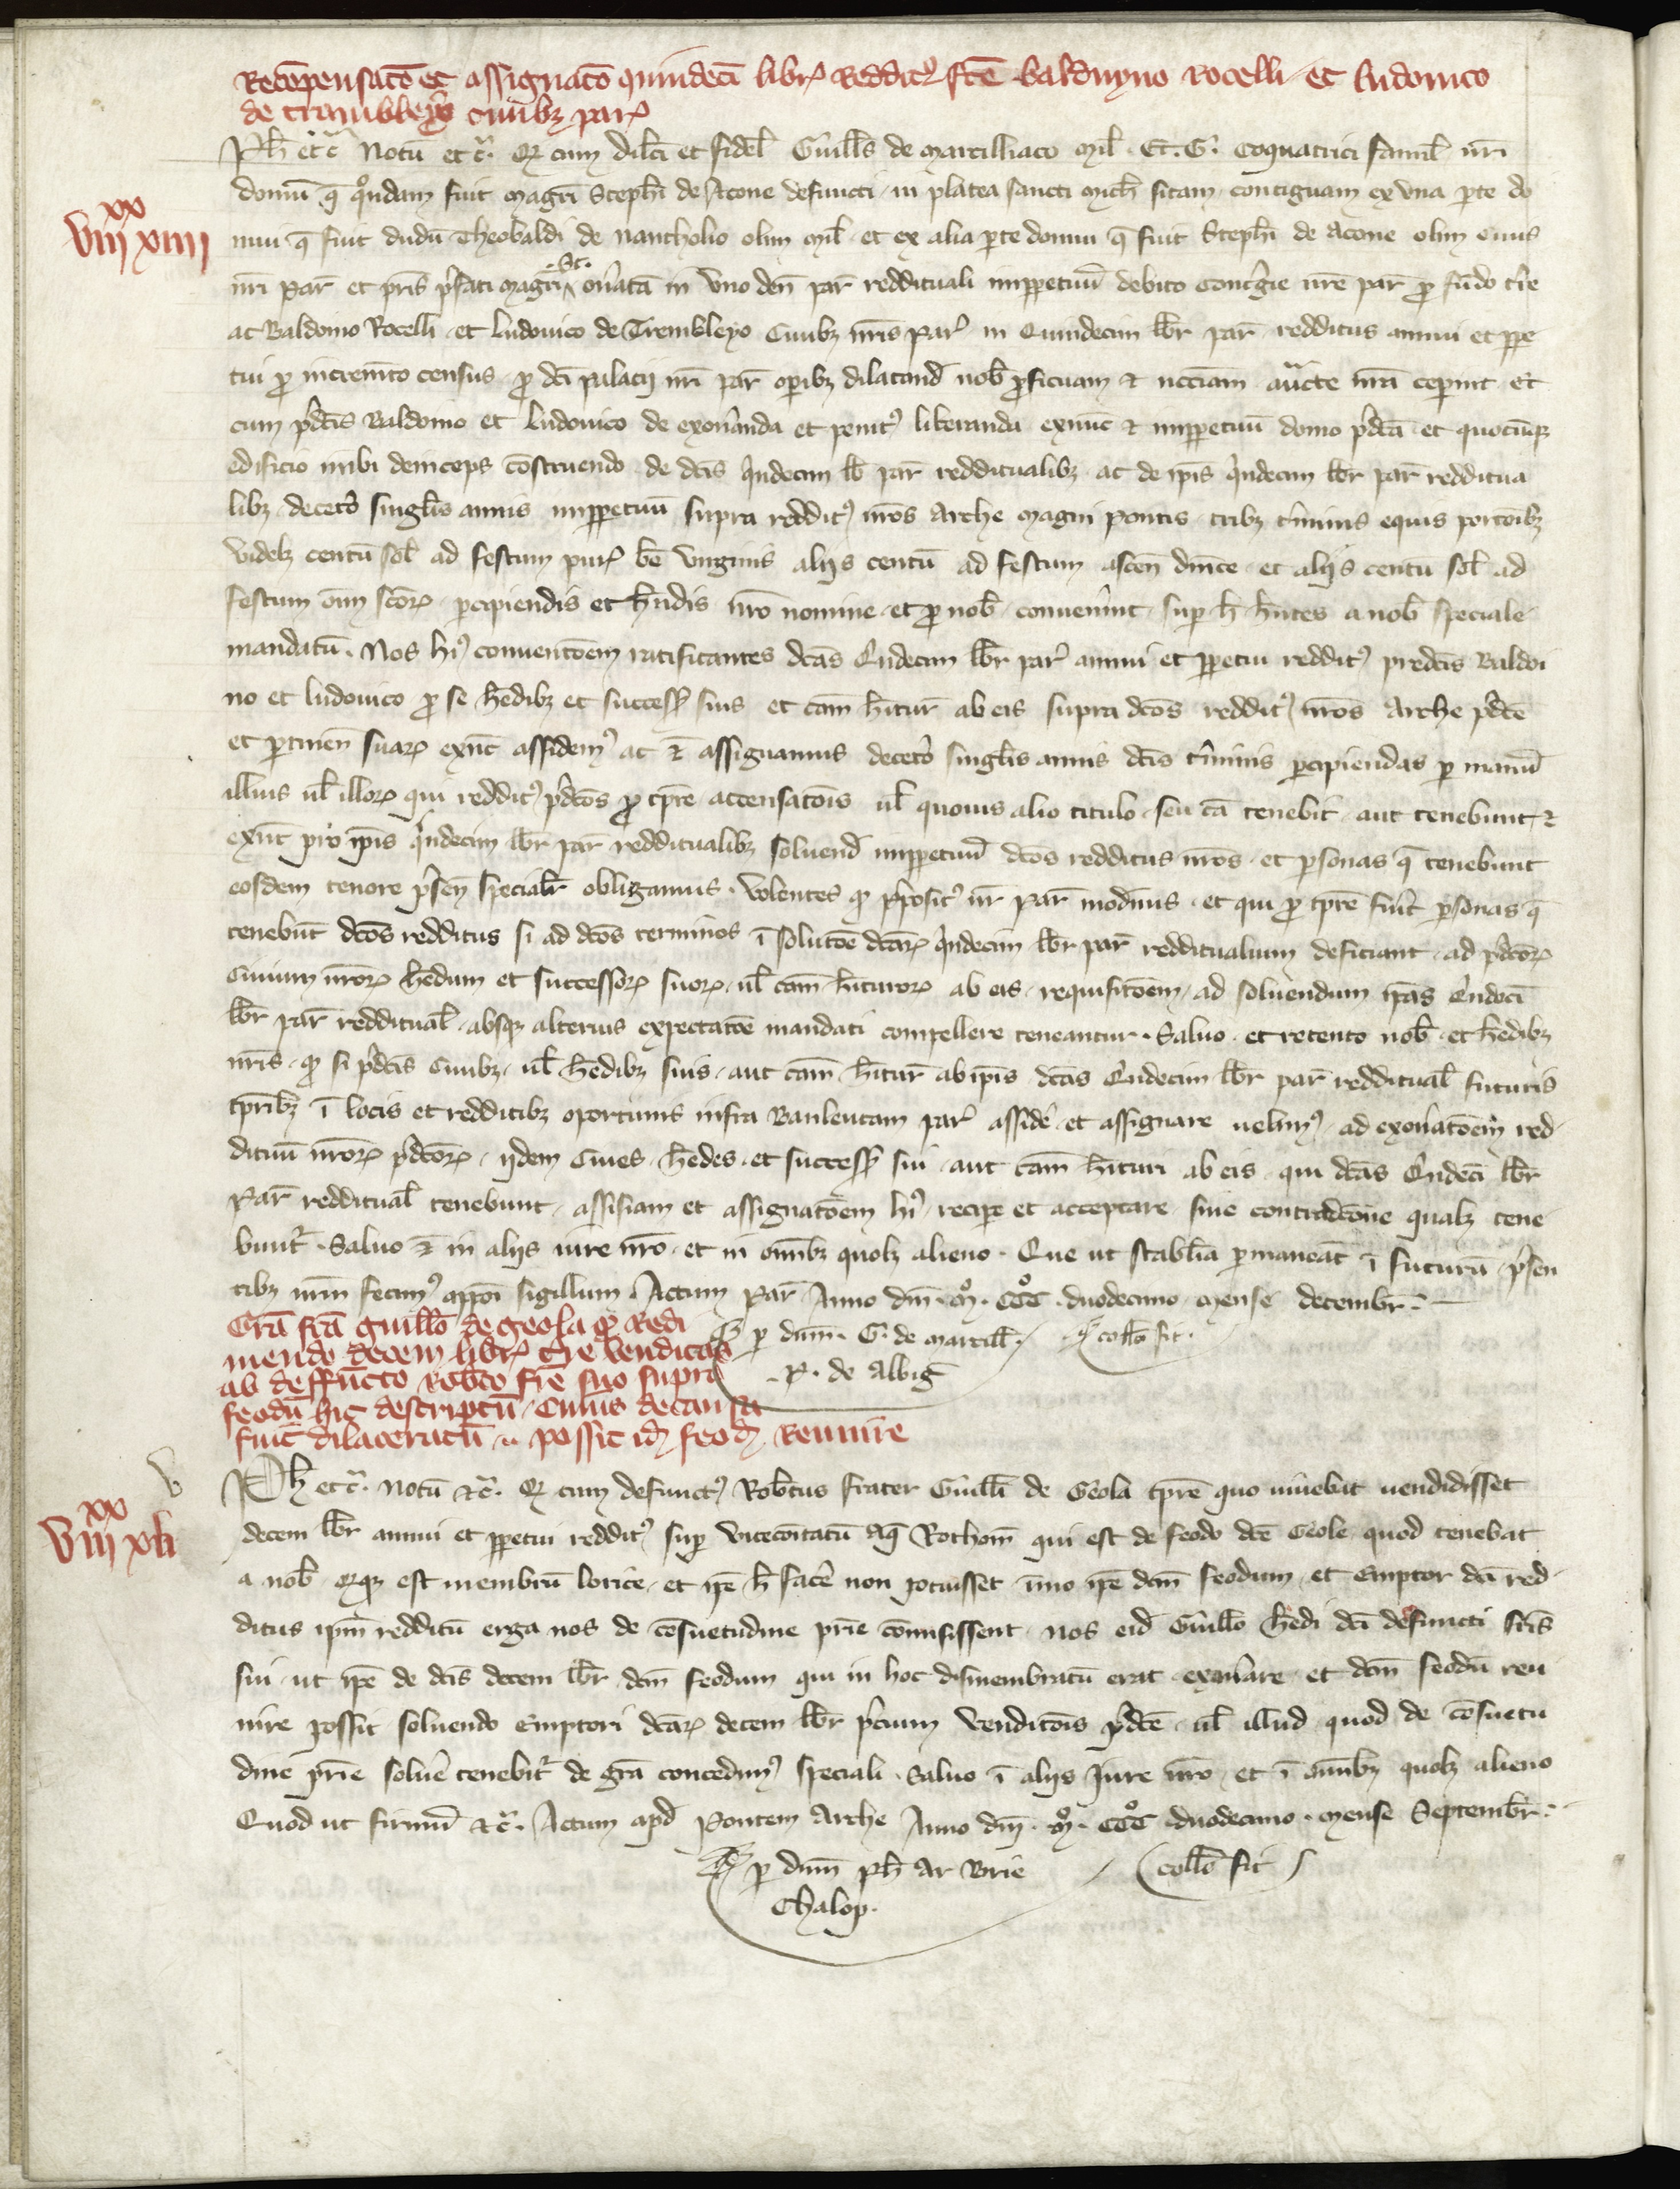 Recōpensatō et assignatō quindecī libr̄ reddit9 fc̄e balduyno Rocelli et ludouico
de trambleyo ciuibz par̄
Ph̄ etc̄ Notū etc̄. Qz cum dilc̄i et fidel̄ Guill̄s de Marcilliaco mil̄. Et. G. Coquatrici famil̄ nr̄i
domū q̄ quōdam fuit magr̄i Steph̄i de Acone defuncti in platea sancti mich̄ sitam contiguam ex vna ꝑte do
xx
viii xiiii
mui q̄ fuit dudū Theobaldi de Nantholio olim mil̄ et ex alia ꝑte domui q̄ fuit Steph̄i de Acone olim ciuis
nr̄i par̄ et pr̄is p̄fati magr̄i .St. on̄atā in vno den̄ par̄ reddituali imꝑpetuū debito Concigie nr̄e par̄ ꝓ fūdo tr̄e
ac Baldoino Rocelli et Ludouico de Trembleyo Ciuibz nr̄is par̄ in Quindecim lbr̄ par̄ redditus annui et ꝑpe
tui ꝓ incremto census ꝓ dc̄i palacij nr̄i par̄ oꝑibz dilatand̄ nob̄ ꝓficuam ⁊ nccīam auc̄te nr̄a ceperint Et
cum p̄dc̄is Baldoino et Ludouico de exon̄anda et penit9 liberanda exnūc ⁊ imꝑpetuū domo p̄dc̄a et quocūqz
edificio inibi deinceps cōstruendo de dc̄is q̄ndecim lb̄ par̄ redditualibz ac de ip̄is q̄ndecim lbr̄ par̄ redditua
libz decet̄o singl̄is annis imꝑpetuū supra reddit9 nr̄os Arche magni pontis tribz t̄minis equis porcōibz
videlz centū sol̄ ad festum pur̄ bē virginis alijs centū ad festum ascen̄ dn̄ice et alijs centū sol̄ ad
festum oīm sc̄or̄ ꝑcipiendis et h̄ndis nr̄o nomine et ꝓ nob̄ conuenerint suꝑ h̄ h̄ntes a nob̄ speciale
mandatū. Nos hi9 conuentōem ratificantes dc̄as Q̄ndecim lbr̄ par̄ annui et ꝑpetui reddit9 predc̄is Baldoi
no et ludouico ꝓ se h̄edibz et success̄ suis et cam̄ h̄itur̄ ab eis supra dc̄os reddit9 nr̄os Arche p̄dc̄e
et ꝑtinen̄ suar̄ exnūc assidem9 ac ⁊ assignamus decet̄o singl̄is annis dc̄is t̄minis ꝑcipiendas ꝑ manū
illius ul̄ illor̄ qui reddit9 p̄dc̄os ꝓ tꝑre accensatōis ul̄ quouis alio titulo seu cā tenebit aut tenebunt ⁊
exnūc pro ip̄is q̄ndecim lbr̄ par̄ redditualibz soluend̄ imꝑpetuū dc̄os redditus nr̄os et ꝑsonas q̄ tenebunt
eosdem tenore p̄sen̄ specialr̄ obligamus. Volentes qꝫ p̄posit9 nr̄ par̄ modn̄us et qui ꝓ tꝑre fuit̄ ꝑsonas q̄
tenebūt dc̄os redditus si ad dc̄os terminos ī solutōe dc̄ar̄ q̄ndecim lbr̄ par̄ reddituaium deficiant ad p̄dc̄or̄
Ciuium nr̄or̄ h̄edum et successor̄ suor̄ ul̄ cam̄ h̄itūror̄ ab eis requisitōem ad soluendum ip̄as Q̄ndecī
lbr̄ par̄ reddituāl̄ absqz alterius expectatōe mandati compellere teneantur. Saluo et retento nob̄ et h̄edibz
nr̄is. qꝫ si p̄dc̄is Ciuibz ul̄ h̄edibz suis aut cam̄ h̄itur̄ ab ip̄is dc̄as Q̄ndecim lbr̄ par̄ reddituāl̄ futuris
tꝑribz ī locis et redditibz oportunis infra Banleucam par̄ assid̄e et assignare uelim9 ad exon̄atōem red
dituū nr̄or̄ p̄dc̄or̄ ijdem Ciues h̄edes et success̄ sui aut cam̄ h̄ituri ab eis qui dc̄as Q̄ndecī lbr̄
Par̄ reddituāl̄ tenebunt assisiam et assignatōem hi9 reciꝑe et acceptare sine contradc̄one qualz tene
bunt̄. Saluo ⁊ in alijs iure nr̄o et in omībz quolz alieno. Que ut stabl̄ia ꝑmaneāt ī futurū p̄sen
tibz nr̄m fecim9 appōi sigillum Actum Par̄ Anno dn̄i .mº. CCCº. duodecimo mense decembr̄.
ꝑ dn̄m. G. de marcill̄. collō fit.
P. de Albiḡ
Grā fc̄a guill̄o de geola ꝓ Redi
mendo decem libr̄ t̄re venditas
ab deffuncto Robto fr̄e suo supra
feodū hic descriptū. Cuius de causa
fuit dilaceratū u possit id̄ feod̄ Reunire
xx
viii xv
Ph̄ etc̄. Notū ⁊c̄. Qz cum defunct9 Rob̄tus frater Guill̄i de Geola tꝑre quo uiuebat uendidisset
decem lbr̄ annui et ꝑpetui reddit9 suꝑ vicecomitatū aq̄ Rothom̄ qui est de feodo dc̄e Geole quod tenebat
a nob̄ qzqz est membrū lorice et ip̄e h̄ fac̄e non potuisset īmo ip̄e dcm̄ feodum et Emptor dc̄i red
ditus ip̄m redditū erga nos de cōsuetudine pr̄ie cōmisissent nos eid̄ Guill̄o h̄edi dc̄i defuncti fr̄is
sui ut ip̄e de dc̄is decem lbr̄ dcm̄ feodum qui in hoc dismembratū erat exon̄are et dcm̄ feodū reu
nire possit soluendo Emptori dc̄ar̄ decem lbr̄ p̄cium venditōis p̄dc̄e ul̄ illud quod de cōsuetu
dine pr̄ie solūe tenebit̄ de grā concedim9 speciali. Saluo ī alijs Jure nr̄o et ī omībz quolz alieno
Quod ut firmū ⁊c̄. Actum apd̄ Pontem Arche Anno dn̄i .mº. CCCº duodecimo. mense Septembr̄.
ꝑ dn̄m Ph̄ Ar Brie collō fit
Chalop.